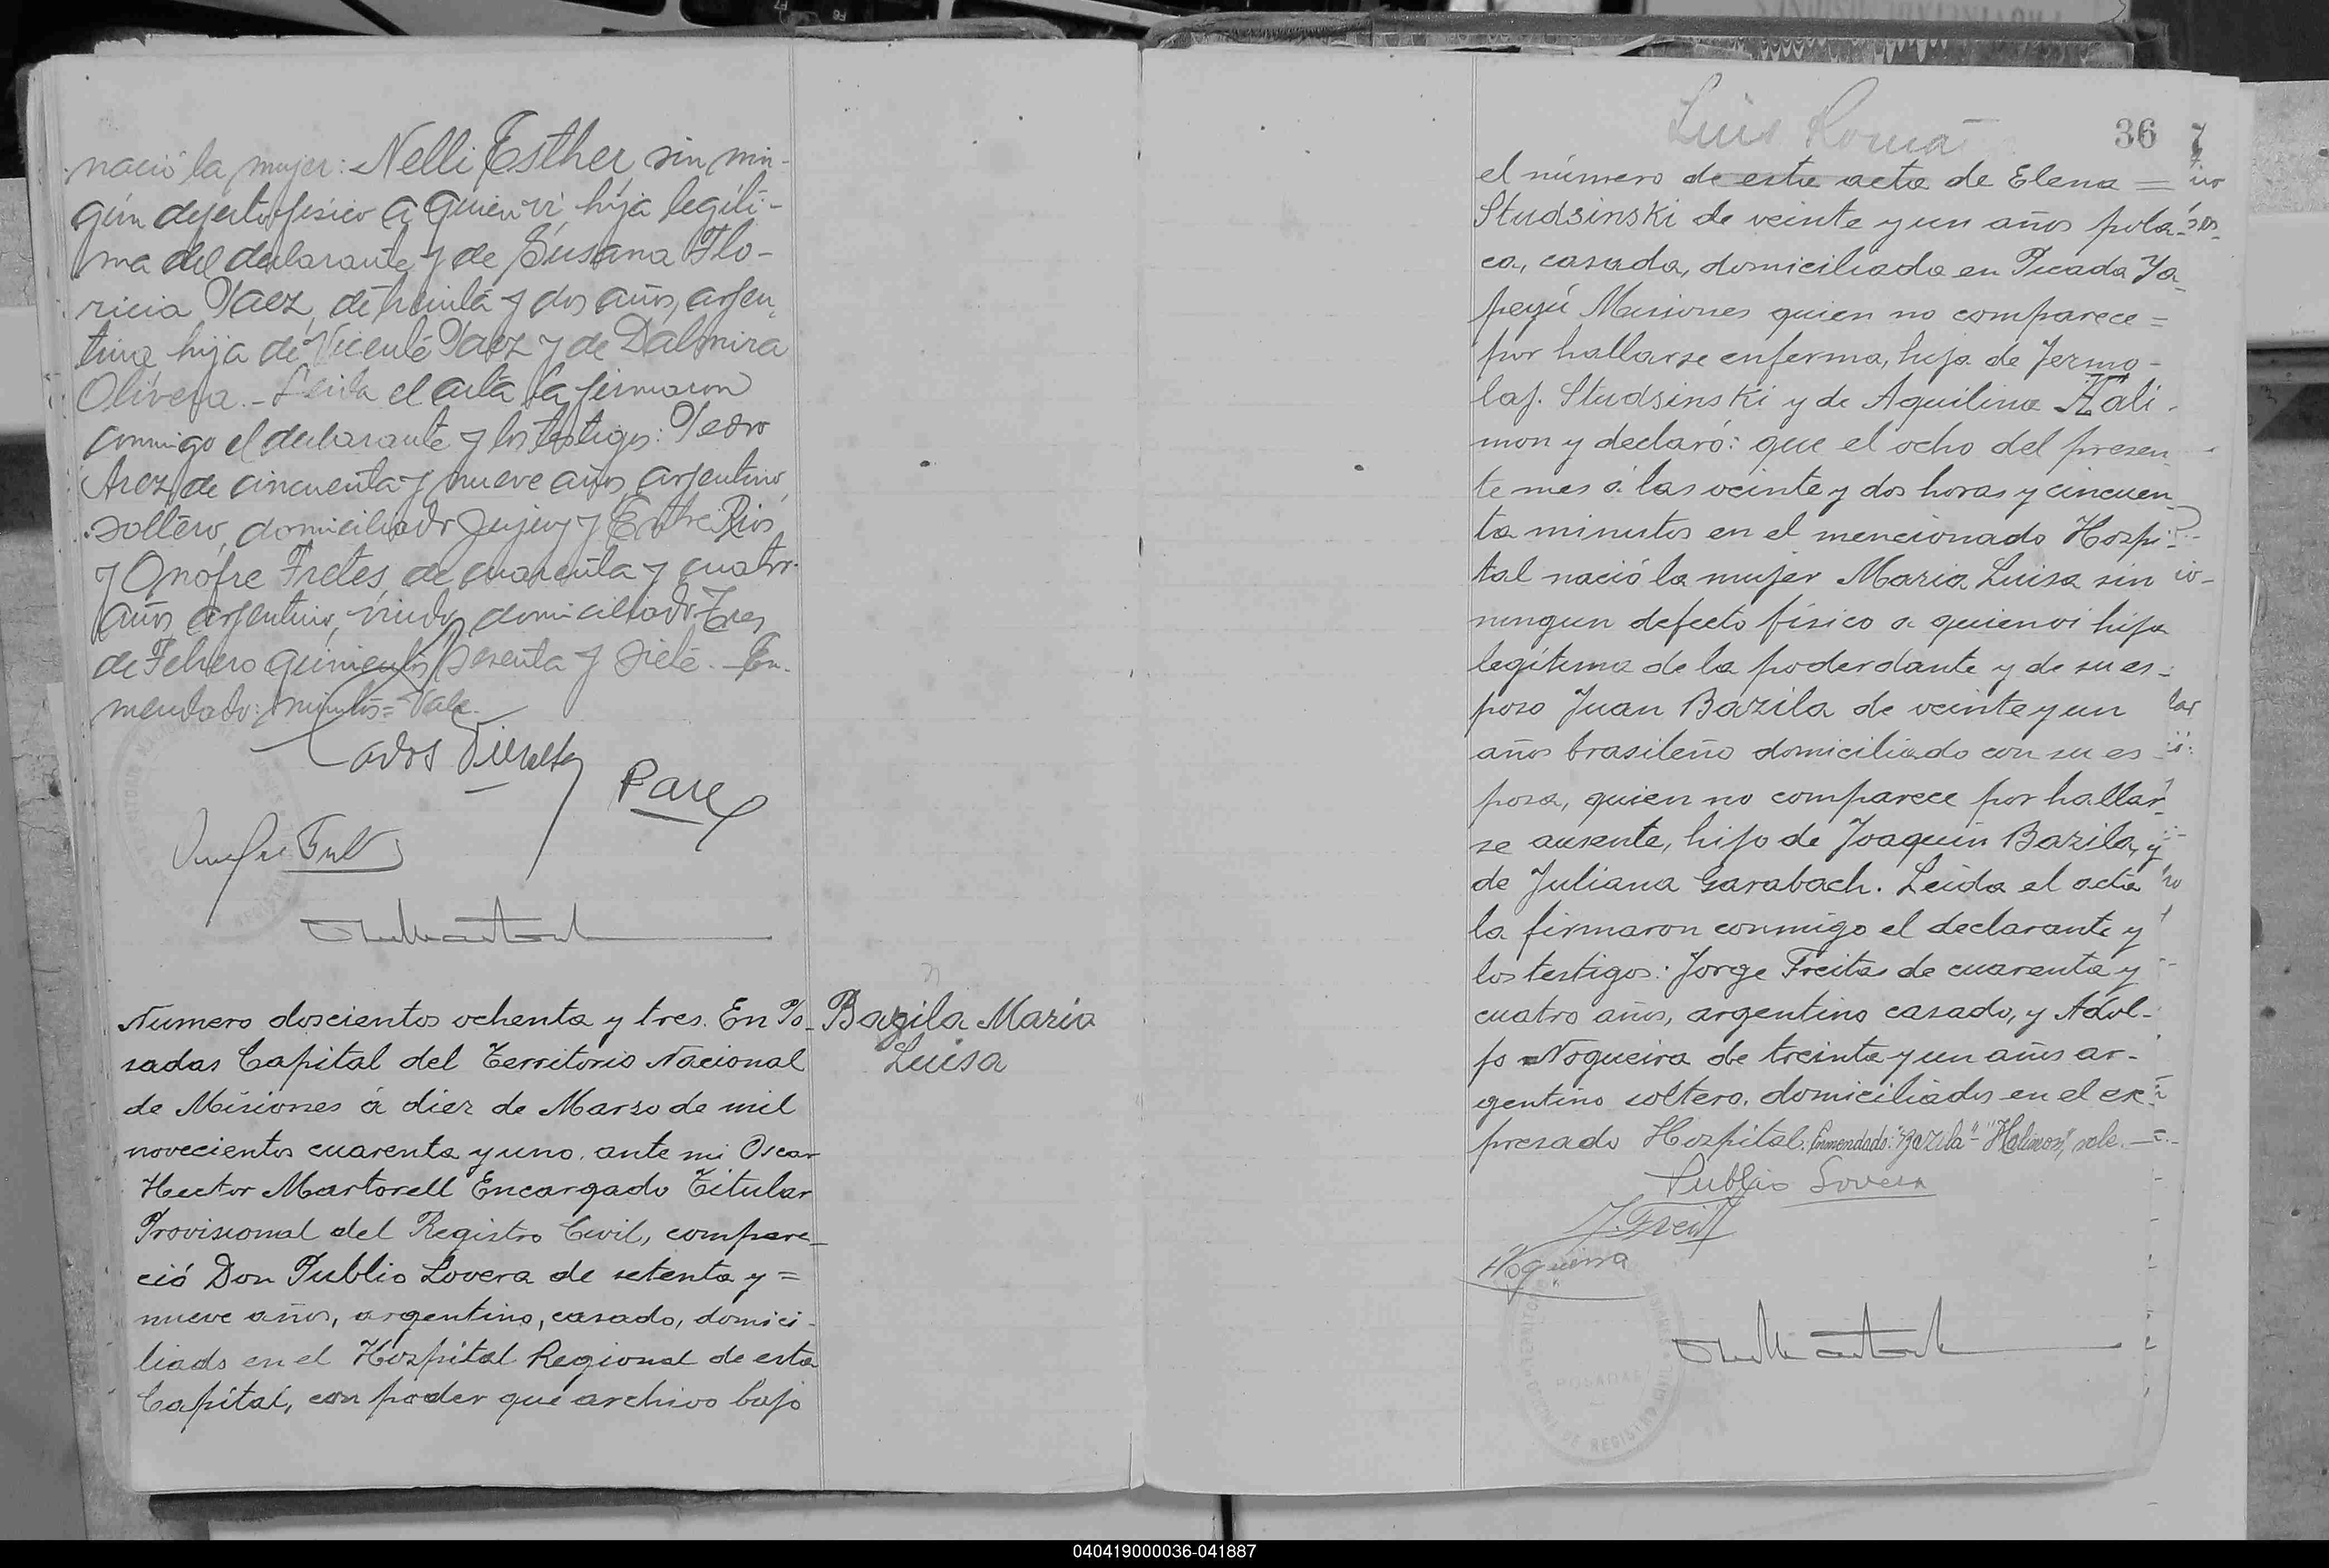 nació la mujer: Nelli Esther, sin nin-
gún defecto físico a quien ví, hija legíti-
ma del declarante y de Susana Flo-
ricia Paez, de treinta y dos años, argen-
tina, hija de Vicente Paez y de Dalmira
Olivera.- Leída el acta la firmaron
conmigo el declarante y los testigos: Pedro
Arez de cincuenta y nueve años, argentino,
soltero, domiciliado Jujuy y Entre Rios,
y Onofre Fretes, de cuarenta y cuatro
años, argentino, viudo, domiciliado Tres
de Febrero quinientos sesenta y siete.- En-
mendado: minutos = Vale.
Numero doscientos ochenta y tres. En Po-
sadas Capital del Territorio Nacional
de Misiones á diez de Marzo de mil
novecientos cuarenta y uno. ante mi Oscar
Hector Martorell Encargado Titular
Provisional del Registro Civil, compare-
ció Don Publio Lovera de setenta y =
nueve años, argentino, casado, domici-
liado en el Hospital Regional de esta
Capital, con poder que archivo bajo
Bazila Maria
Luisa
Luis Roma
36
el número de este acta de Elena =
Studsinski de veinte y un años pola-
ca, casada, domiciliada en Picada Ya-
peyú Misiones quien no comparece =
por hallarse enferma, hija de Jermo-
laj. Studsinski y de Aquilina Hali-
mon y declaró: que el ocho del presen-
te mes á las veinte y dos horas y cincuen-
ta minutos en el mencionado Hospi-
tal nació la mujer Maria Luisa sin
ningun defecto físico a quien vi hija
legítima de la poderdante y de su es-
poso Juan Bazila de veinte y un
años brasileño domiciliado con su es-
posa, quien no comparece por hallar-
se ausente, hijo de Joaquin Bazila, y
de Juliana Garabach. Leida el acta
la firmaron conmigo el declarante y
los testigos: Jorge Freitas de cuarenta y
cuatro años, argentino casado, y Adol-
fo Nogueira de treinta y un años ar-
gentino soltero. domiciliados en el ex-
presado Hospital. Enmendado: "Bazila" - "Halimon", vale. -
Publio Lovera
J. Freit
Noguera
POSADAS
040419000036-041887